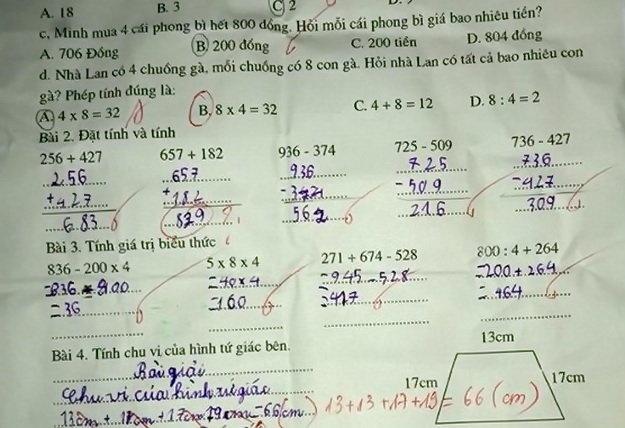 A. 18 B. 3 C 2 D.
c, Minh mua 4 cái phong bì hết 800 đồng. Hỏi mỗi cái phong bì giá bao nhiêu tiền?
A. 706 Đồng B) 200 đồng C. 200 tiền D. 804 đồng
d. Nhà Lan có 4 chuồng gà, mỗi chuồng có 8 con gà. Hỏi nhà Lan có tất cả bao nhiêu con
gà? Phép tính đúng là:
A) 4 x 8 = 32 B, 8 x 4 = 32 C. 4 + 8 = 12 D. 8 : 4 = 2
Bài 2. Đặt tính và tính
256 + 427 657 + 182 936 - 374 725 - 509 736 - 427
256 657 936 725 736
+ 427 + 182 - 509 - 427
683 829 562 216 309
Bài 3. Tính giá trị biểu thức
836 - 200 x 4 5 x 8 x 4 271 + 674 - 528 800 : 4 + 264
= 836 - 800 = 40 x 4 = 945 - 528 = 200 + 264
= 36 = 160 = 417 = 464
Bài 4. Tính chu vi của hình tứ giác bên.
Bài giải
Chu vi của hình tứ giác
13cm
17cm 17cm
13 + 13 + 17 + 19 = 66 (cm)